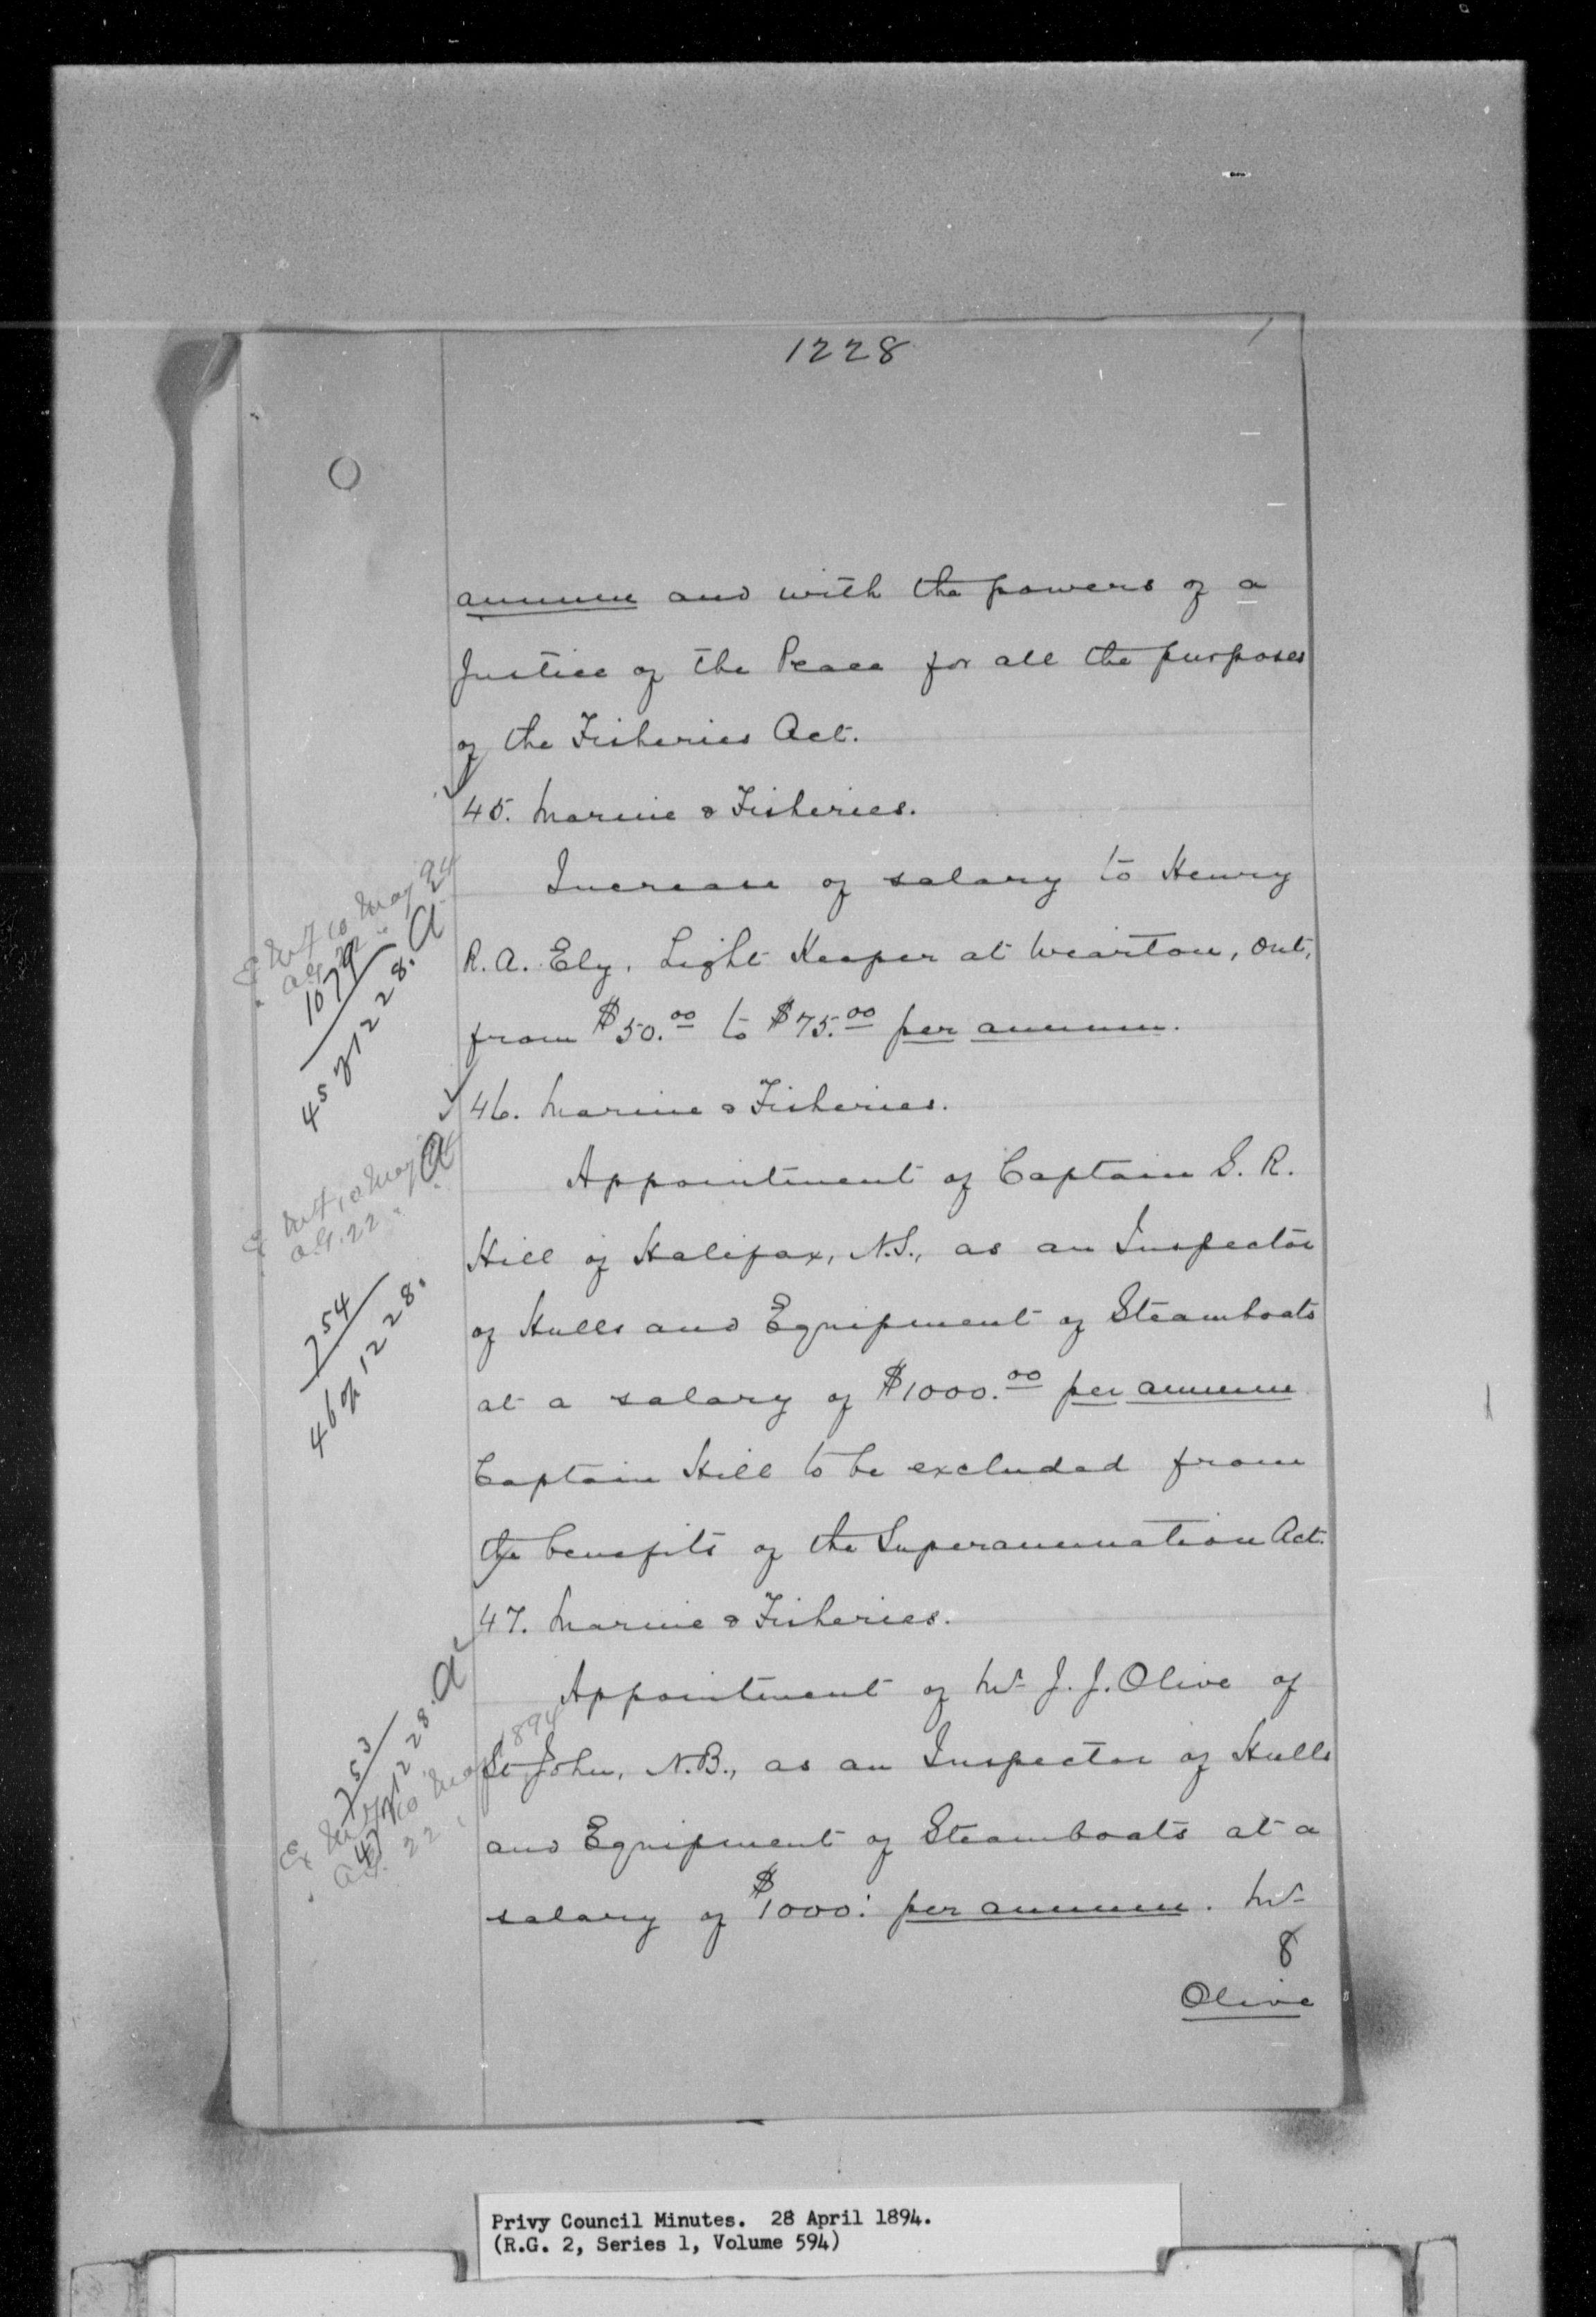 1228
annum and with the powers of a
Justice of the Peace for all the purposes
of the Fisheries Act.
45. Marine & Fisheries.
Increase of salary to Henry
R. A. Ely, Light Keeper at Wiarton, Ont,
from $50.00 to $75.00 per annum.
46. Marine & Fisheries.
Appointment of Captain S. R.
Hill of Halifax, N.S., as an Inspector
of Hulls and Equipment of Steamboats
at a salary of $1000.00 per annum
Captain Hill to be excluded from
the benefits of the Superannuation Act.
47. Marine & Fisheries.
Appointment of Mr J. J. Olive of
St John, N.B., as an Inspector of Hulls
and Equipment of Steamboats at a
salary of $1000: per annum. Mr
8
Olive
M&F 10 May 94
A.G. 22 "
1079
45 of 1228. A
M&F 10 May
A.G. 22 "
A
754
46 of 1228.
753
47 of 1228. A
10 May 1894
A.G. 22 "
Privy Council Minutes. 28 April 1894.
(R.G. 2, Series 1, Volume 594)